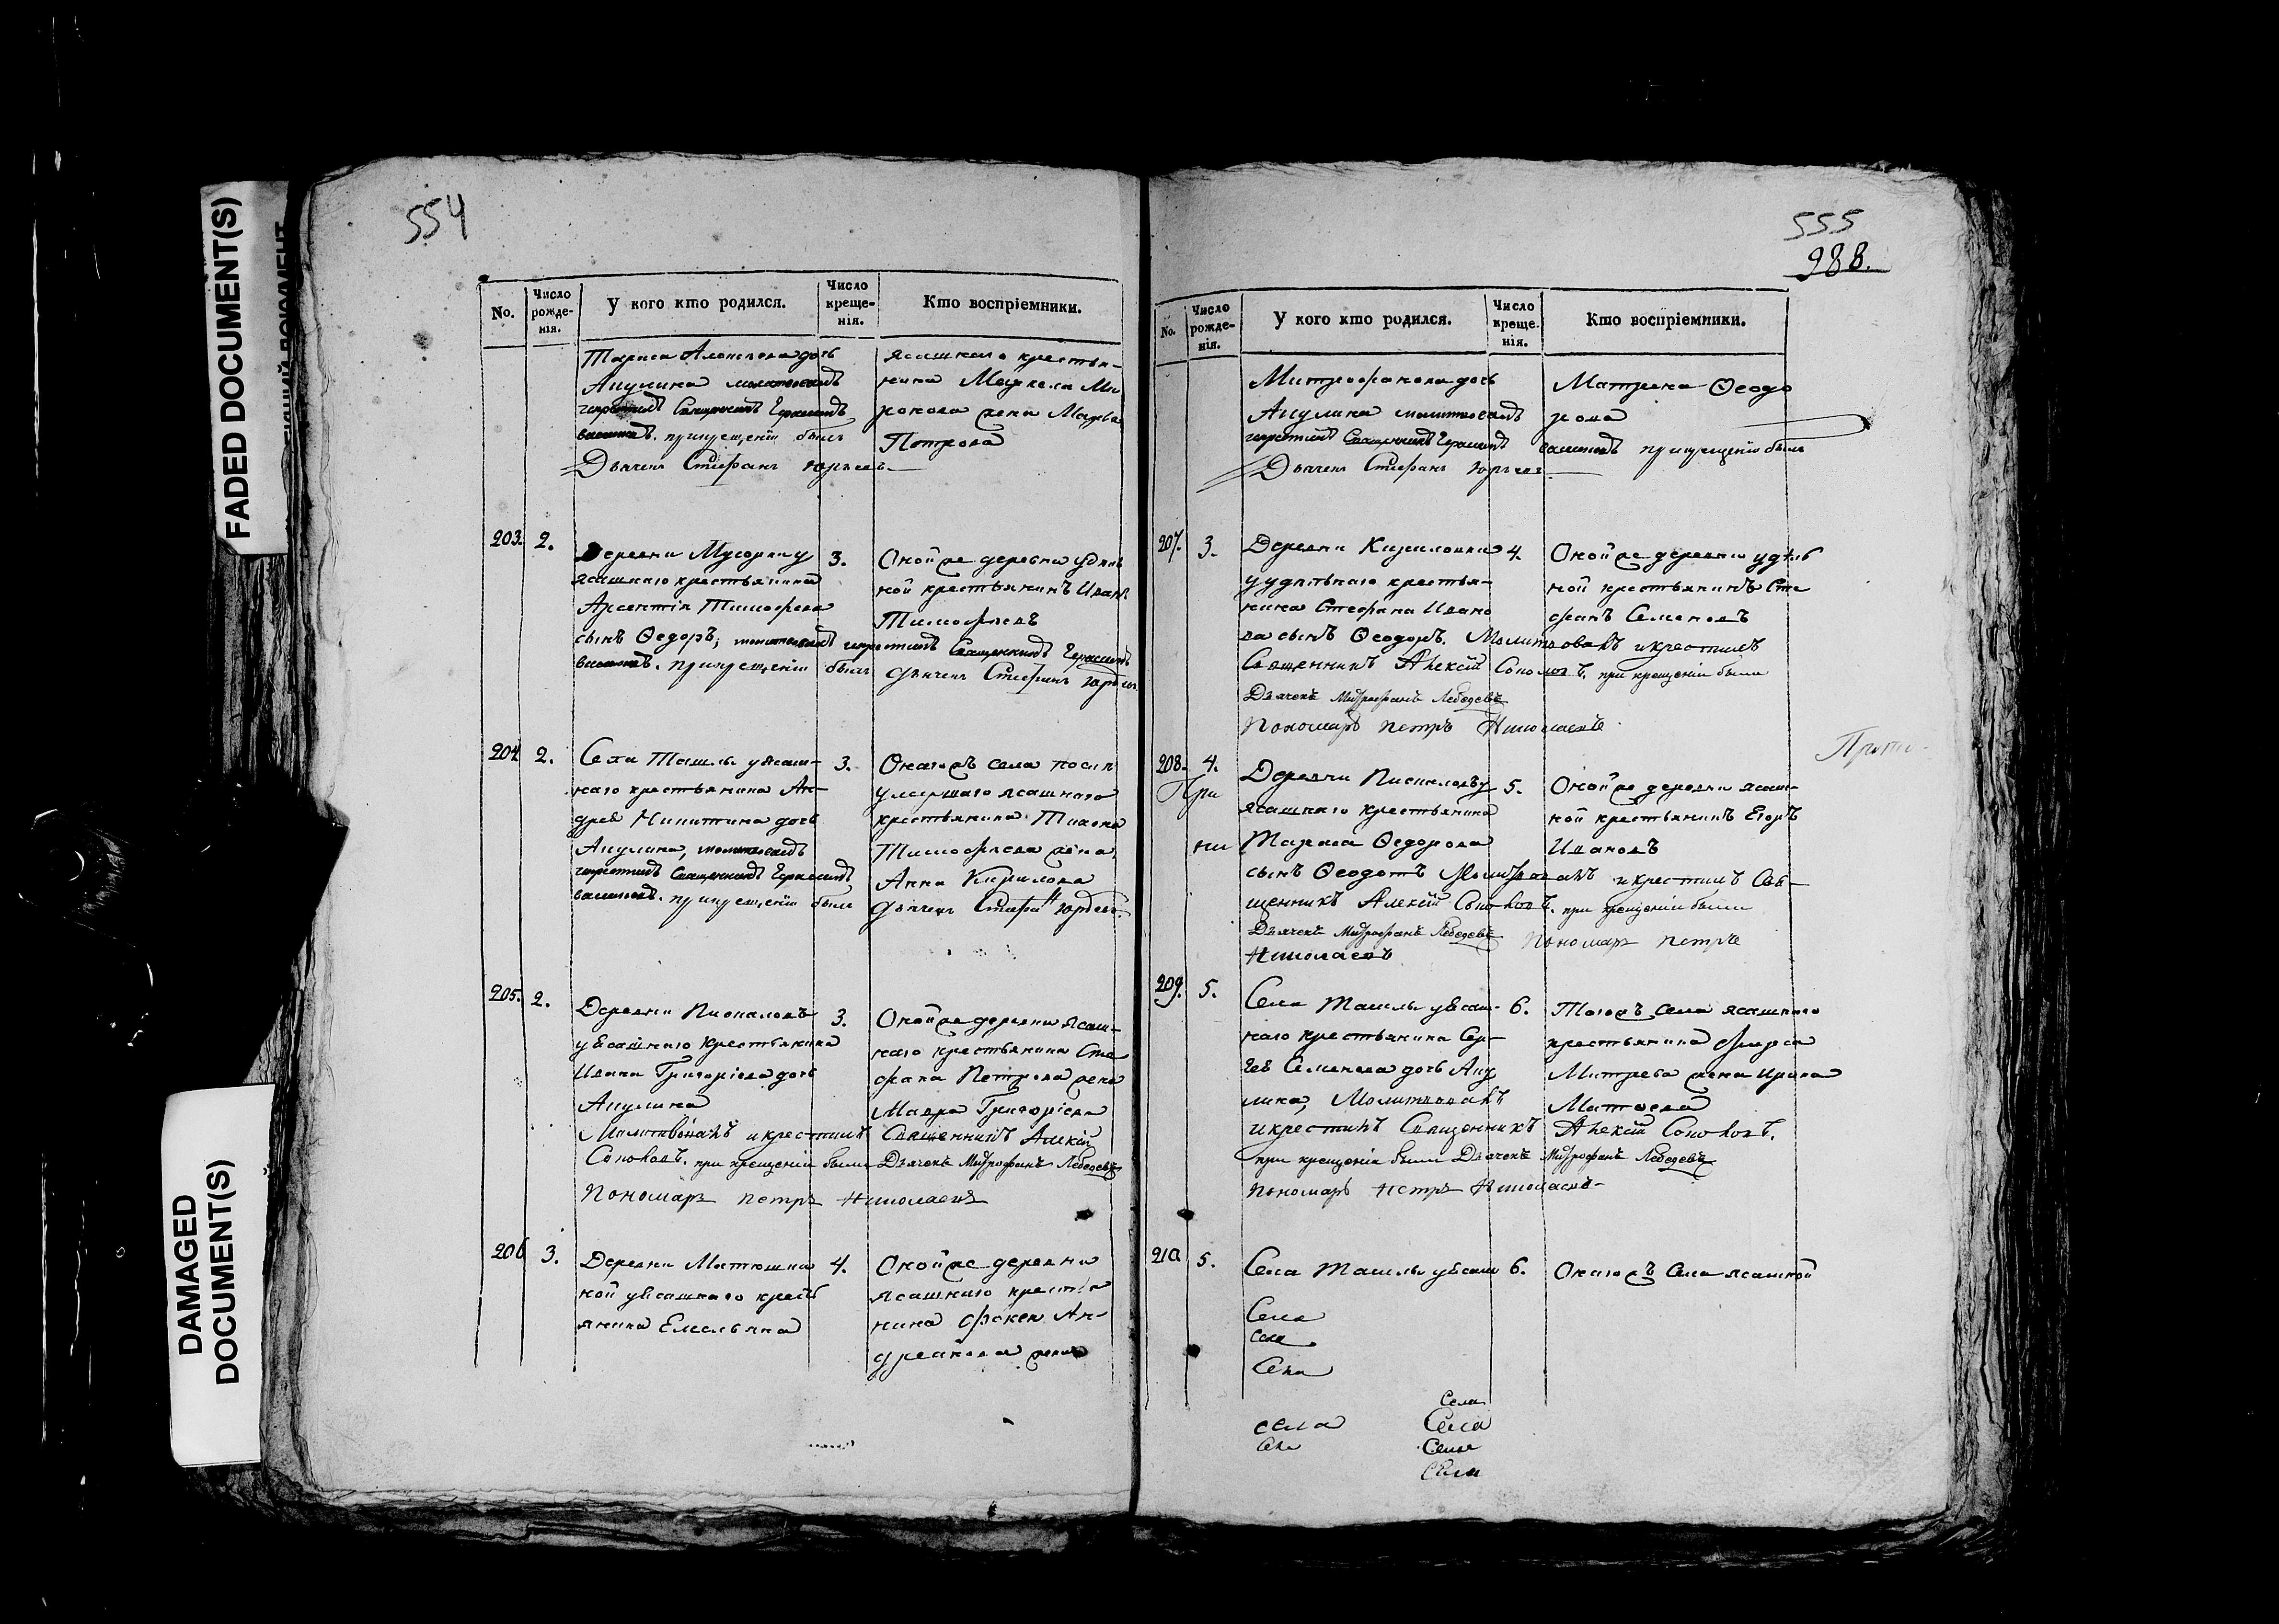 FADED DOCUMENT(S)
DAMAGED
DOCUMENT(S)
554
No.
Число рожде-нія.
У кого кто родился.
Число креще-нія.
Кто воспріемники.
дочь
Акулина молитвовалъ
икрестилъ Священникъ Герасимъ
прикрещеніи былъ
Дьячекъ Стефанъ Юрьевъ
ясашнаго крестья-
нина Ми
ронова жена
Петрова
203. 2.
Деревни
ясашнаго крестьянина
Арсентія Тимофеева
сынъ Ѳедоръ, молитвовалъ икрестилъ Священникъ Герасимъ
прикрещеніи былъ дьячекъ Стефанъ Юрьевъ
3.
Онойже деревни удѣль
ной крестьянинъ Иванъ
Тимофѣевъ
204 2.
Села Ташлы уясаш-
наго крестьянина Ан-
дрея Никитина дочь
Акулина, молитвовалъ
икрестилъ Священникъ Герасимъ
прикрещеніи былъ
3.
Онагожъ села
умершаго ясашнаго
крестьянина Тихона
Тимофѣева жена
Анна Кирилова
дьячекъ Стефанъ Юрьевъ
205. 2.
Деревни
уясашнаго крестьянина
Ивана Григоріева дочь
Акулина
3.
Онойже деревни ясаш-
наго крестьянина Сте
фана Петрова жена
Мавра Григоріева
Молитвовалъ икрестилъ Священникъ Алексій
Соколовъ. при крещеніи были Дьячекъ Митрофанъ Лебедевъ
Пономарь Петръ Николаевъ
206 3.
Деревни Матюшки
ной уясашнаго кресть
янина Емельяна
4.
Онойже деревни
ясашнаго крестья
нина Ан-
дреянова жена
555
288.
No.
Число рожде-нія.
У кого кто родился.
Число креще-нія.
Кто воспріемники.
Митрофанова дочь
Акулина молитвовалъ
икрестилъ Священникъ Герасимъ
прикрещеніи былъ
Дьячекъ Стефанъ Юрьевъ
Матрена Ѳеодо
рова
207. 3.
Деревни
уудѣльнаго крестья-
нина Стефана Ивано
ва сынъ Ѳеодоръ. Молитвовалъ икрестилъ
Священникъ Алексій Соколовъ. при крещеніи были
Дьячекъ Митрофанъ Лебедевъ
Пономарь Петръ Николаевъ
4.
Онойже деревни удѣль
ной крестьянинъ Сте
фанъ Семеновъ
208. 4.
При
Деревни
ясашнаго крестьянина
Тараса Ѳедорова
сынъ Ѳеодотъ Молитвовалъ икрестилъ Свя-
щенникъ Алексій Соколовъ. при крещеніи были
Дьячекъ Митрофанъ Лебедевъ Пономарь Петръ
Николаевъ
5.
Онойже деревни ясаш-
ной крестьянинъ Егоръ
Ивановъ
209. 5.
Села Ташлы уясаш-
наго крестьянина Сер-
гея Семенова дочь Аку
лина, Молитвовалъ
икрестилъ Священникъ Алексій Соколовъ.
при крещеніи были Дьячекъ Митрофанъ Лебедевъ
Пономарь Петръ Николаевъ
6.
Тогожъ села ясашнаго
крестьянина Фирса
жена Ирина
Матвеева
210 5.
Села Ташлы уясаш
6.
Онагожъ Села ясашной
Села
Села
Села
Села
села
Села
Села
Села
Села